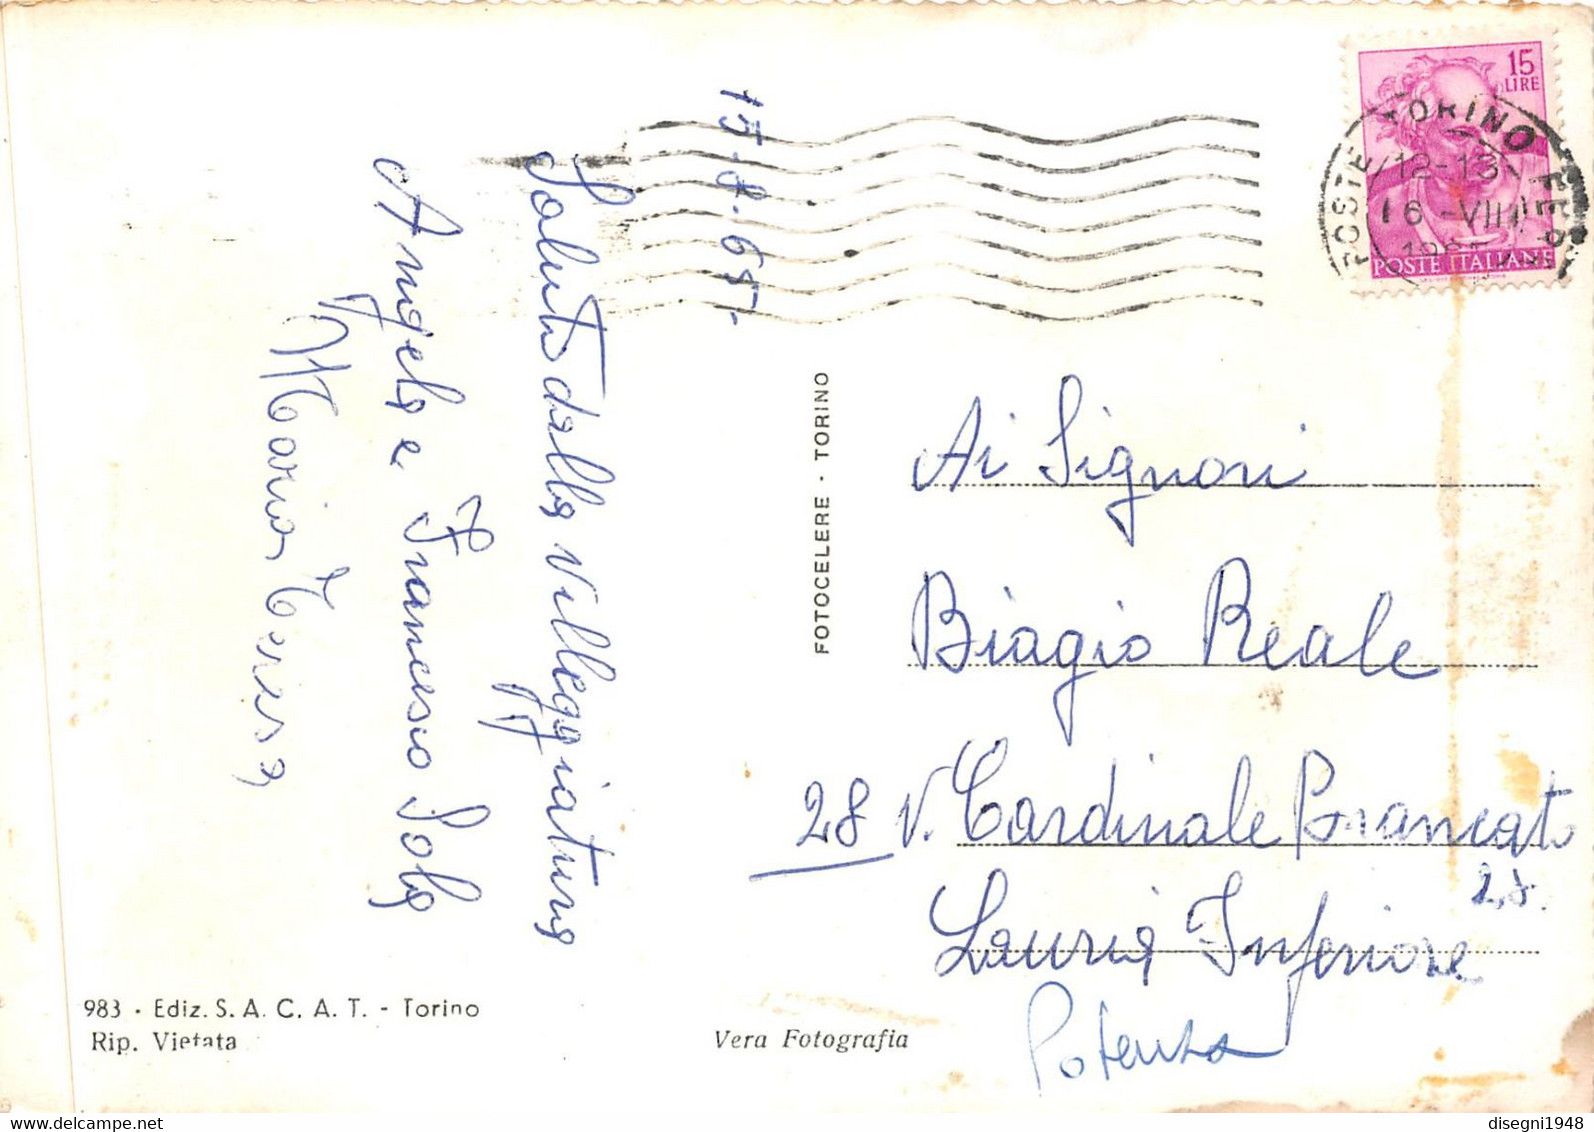 15.8.65-
Saluti dalla villeggiatura
Angela e Francesco Sola
Maria Teresa
983 - Ediz. S. A. C. A. T. - Torino
Rip. Vietata
Vera Fotografia
FOTOCELERE - TORINO
15
LIRE
POSTE ITALIANE
POSTE TORINO FERR.
12-13
16-VIII
Ai Signori
Biagio Reale
28 V. Cardinale Brancato
28.
Lauria Inferiore
Potenza
disegni1948